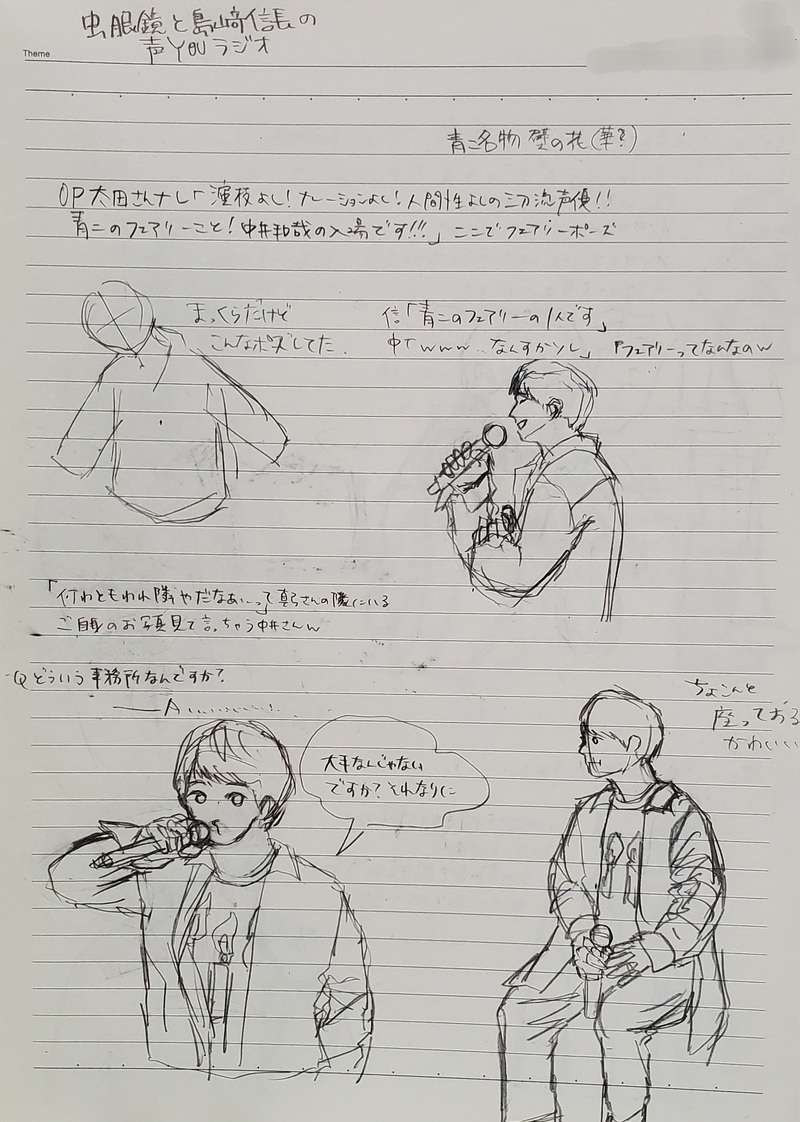 虫眼鏡と島﨑信長の
声YOUラジオ
Theme
青二名物 壁の花(華?)
OP太田さんナレ「演技よし!ナレーションよし!人間性よしの三刀流声優!!
青二のフェアリーこと!中井和哉の入場です!!!」ここでフェアリーポーズ
まっくらだけど
こんなポーズしてた、
信「青二のフェアリーの1人です」
中「www‥なんすかソレ」「フェアリーってなんなのw
われ隣やだなあ…って真弓さんの隣にいる
ご自身のお写真見て言っちゃう中井さんw
Qどういう事務所なんですか?
A
大手なんじゃない
ですか?それなりに
ちょこんと
座っておる
かわいい